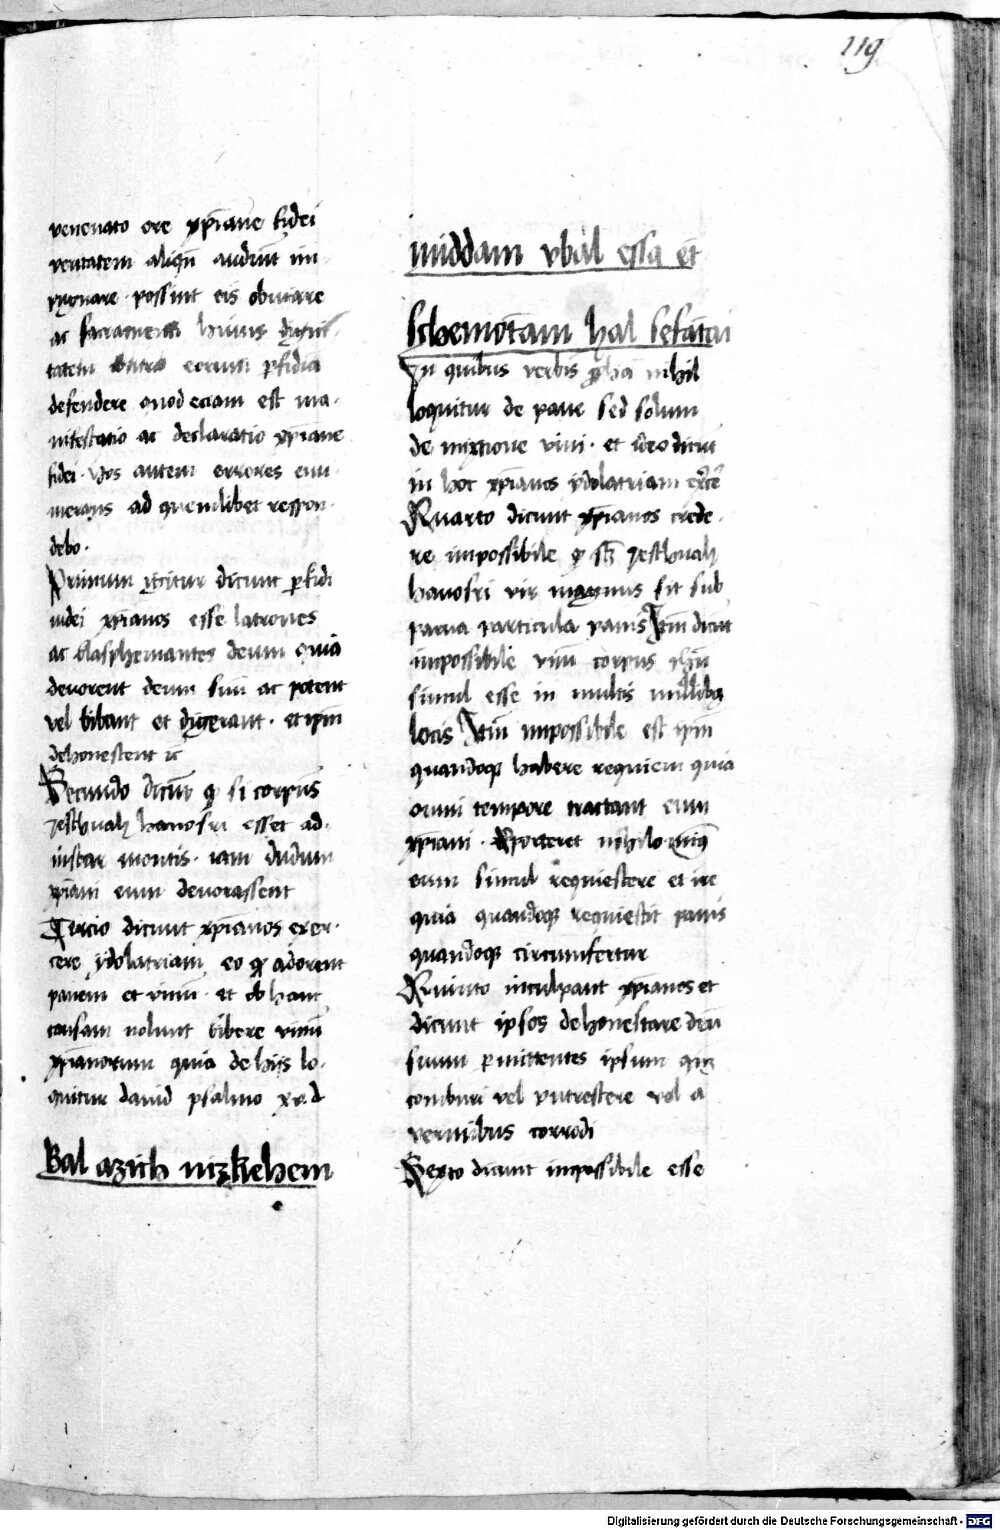 119
venenato ore xp̄iane fidei
veritatem aliqn̄ audiūt im-
pugnare possint eis obuiare
ac sacramenti huius dignit-
tatem contra eorum ꝑfidiā
defendere quod eciam est ma-
nifestacio ac declaracio xp̄iane
fidei. Hos autem errores enu-
merans ad quemlibet respon-
debo.
Primum igitur dicunt ꝑfidi
iudei xp̄ianos esse latrones
ac blasphemantes deum quia
deuorent deum suū ac potent
vel bibant et digerant. et ip̄m
dehonestent
Secundo dicūt ꝙ si corpus
Jeschuah hanosri esset ad
instar montis. iam dudum
xp̄iani eum deuorassent
Tercio dicunt xp̄ianos exer-
cere ydolatriam eo ꝙ adorent
panem et vinū. et ob hanc
causam nolunt bibere vinū
xp̄ianorum quia de hijs lo-
quitur dauid psalmo xv.
Bal azich nizkehem
middam vbal essa et
schemotam hal sefatai
In quibus verbis ꝓph̄a nihil
loquitur de pane sed solum
de mixtione vini. et ideo dicūt
in hoc xp̄ianos ydolatriam
Quarto dicunt xp̄ianos crede-
re impossibile ꝙ Jeschuah
hanosri vir magnus sit sub
parua particula panis Itm̄ dicūt
impossibile vnū corpus
simul esse in multis milibꝫ
locis Itm̄ impossibile est ip̄m
quandoqꝫ habere requiem quia
omni tempore tractant eum
xp̄iani. Oporteret nihilominꝰ
eum simul requiescere et ire
quia quandoqꝫ requiescit panis
quandoqꝫ circumfertur
Quinto inculpant xp̄ianos et
dicunt ipsos dehonestare deū
suum ꝑmittentes ipsum
comburi vel putrescere vel a
vermibus corrodi
Sexto dicunt impossibile esse
Digitalisierung gefördert durch die Deutsche Forschungsgemeinschaft - DFG